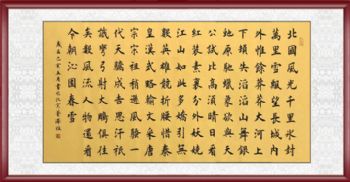 北國風光千里冰封
萬里雪飄望長城內
外惟餘莽莽大河上
下頓失滔滔山舞銀
蛇原馳蠟象欲與天
公試比高須晴日看
紅裝素裹分外妖嬈
江山如此多嬌引無
數英雄競折腰惜秦
皇漢武略輸文采唐
宗宋祖稍遜風騷一
代天驕成吉思汗祇
識彎弓射大鵰俱往
矣數風流人物還看
今朝沁園春雪